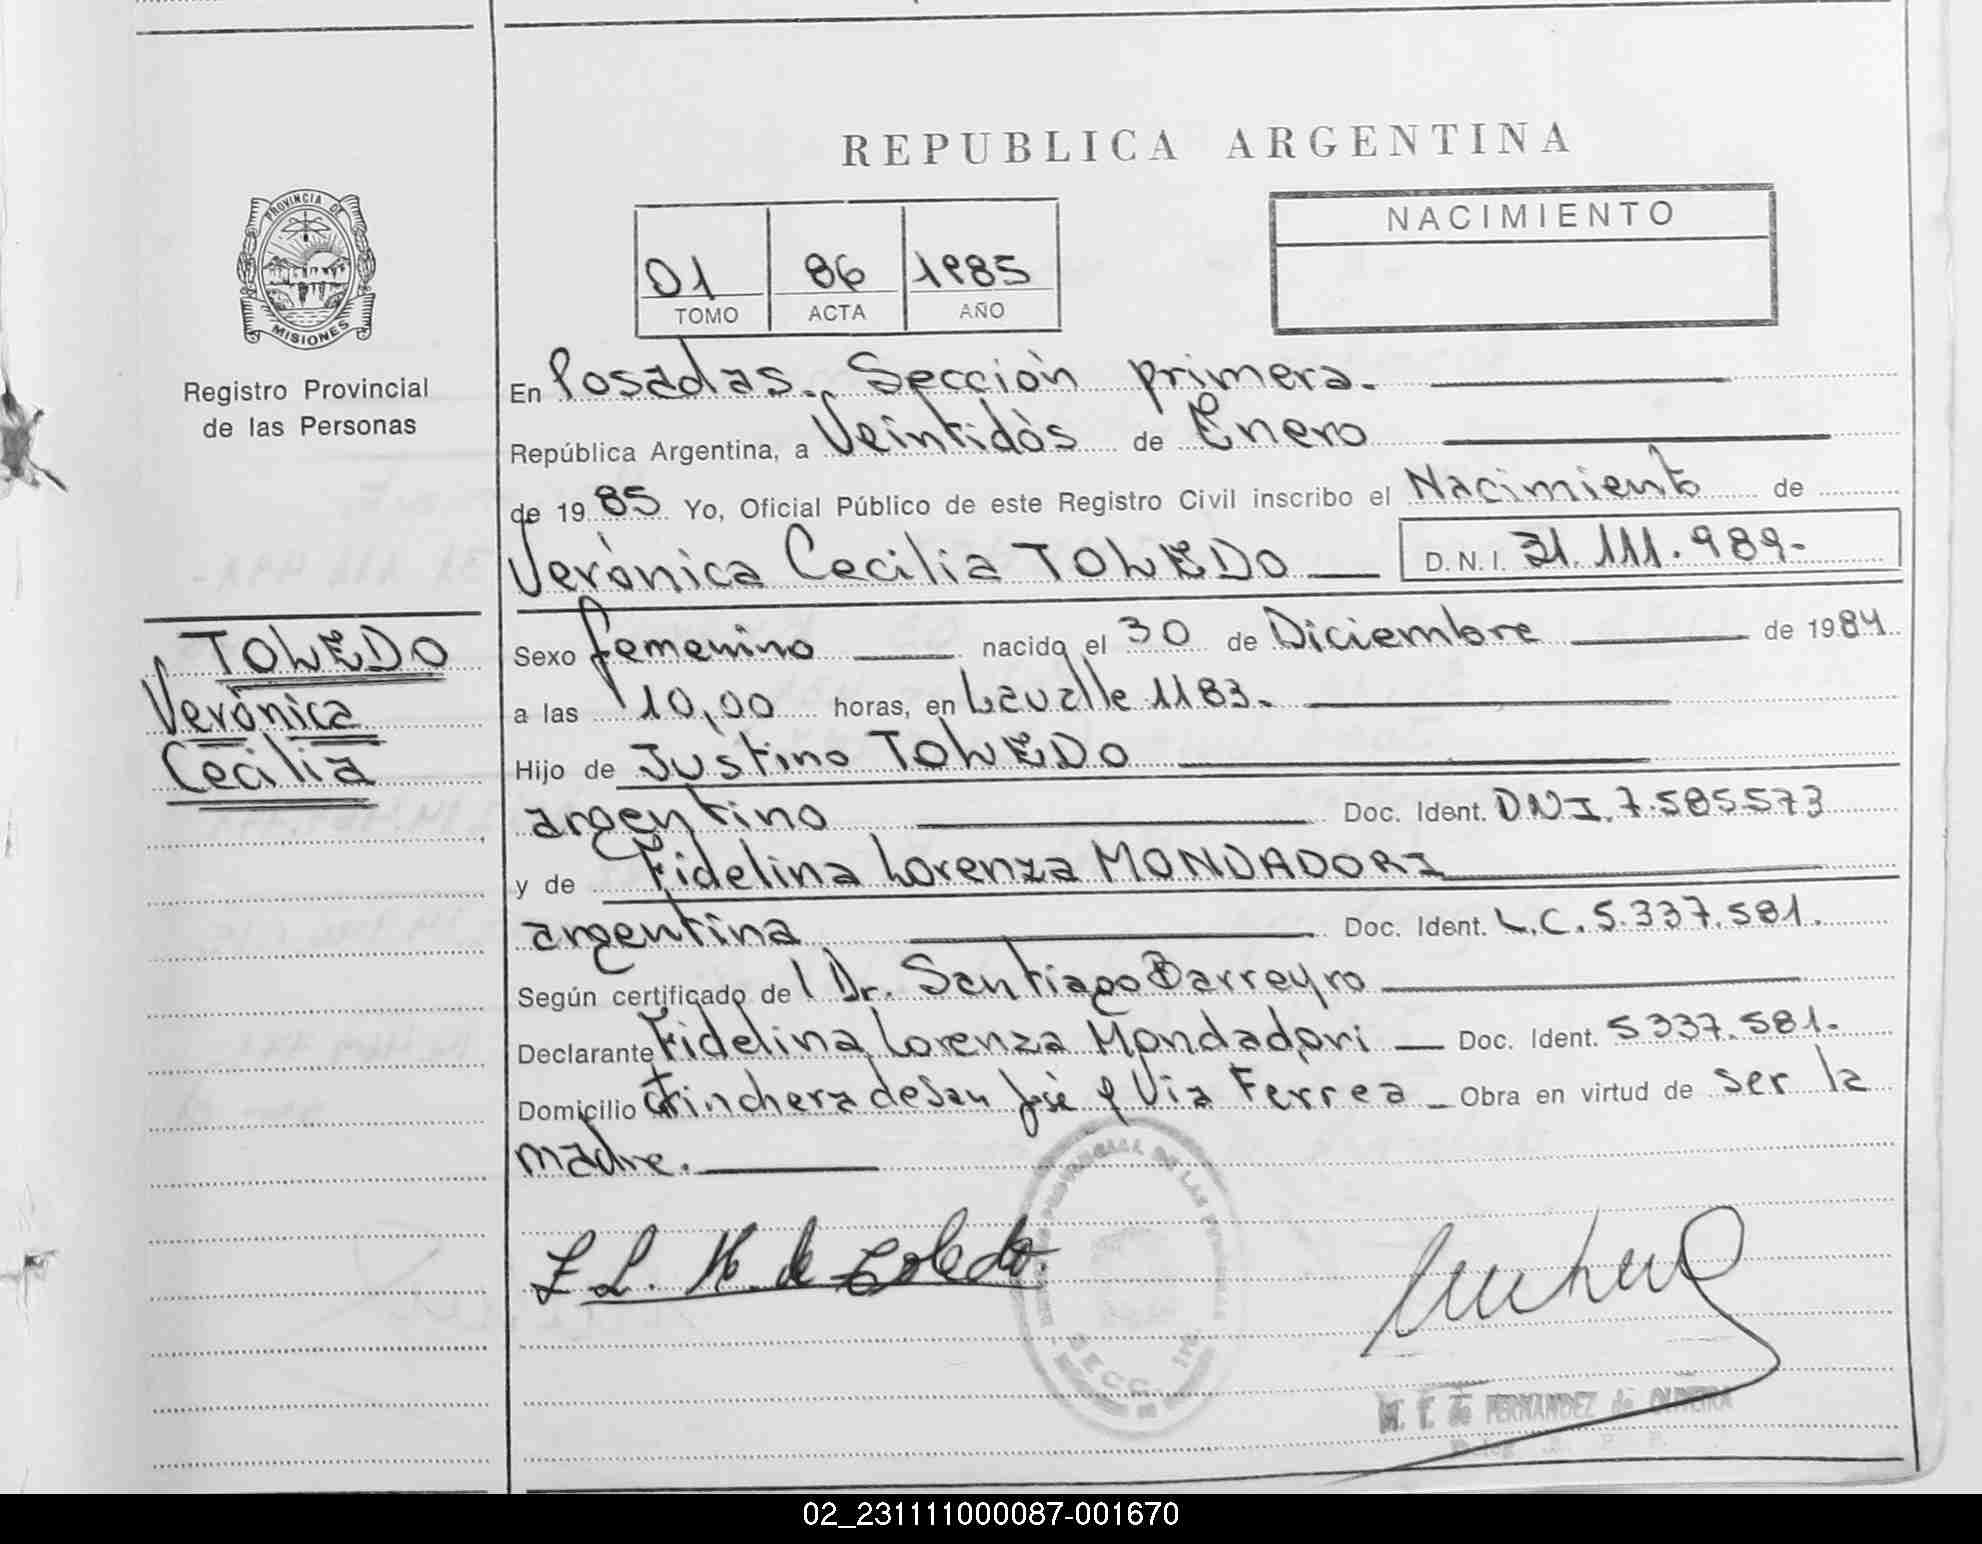 REPUBLICA ARGENTINA
PROVINCIA DE
MISIONES
Registro Provincial
de las Personas
01 86 1985
TOMO ACTA AÑO
NACIMIENTO
En Posadas. Sección primera.
República Argentina, a Veintidòs de Enero
de 1985 Yo, Oficial Público de este Registro Civil inscribo el Nacimiento de
Verònica Cecilia TOLEDO D.N.I. 31.111.989.-
TOLEDO
Verònica
Cecilia
Sexo femenino nacido el 30 de Diciembre de 1984
a las 10,00 horas, en Lavalle 1183.
Hijo de Justino TOLEDO
argentino Doc. Ident. DNI. 7.585.573
y de Fidelina Lorenza MONDADORI
argentina Doc. Ident. L.C. 5.337.581.
Según certificado del Dr. Santiago Barreyro
Declarante Fidelina Lorenza Mondadori Doc. Ident. 5337.581.
Domicilio Trinchera de San José y Via Ferrea Obra en virtud de ser la
madre.
F L. M. de Toledo
SECC. 1ra.
M. F. de FERNANDEZ de OLIVEIRA
02_231111000087-001670